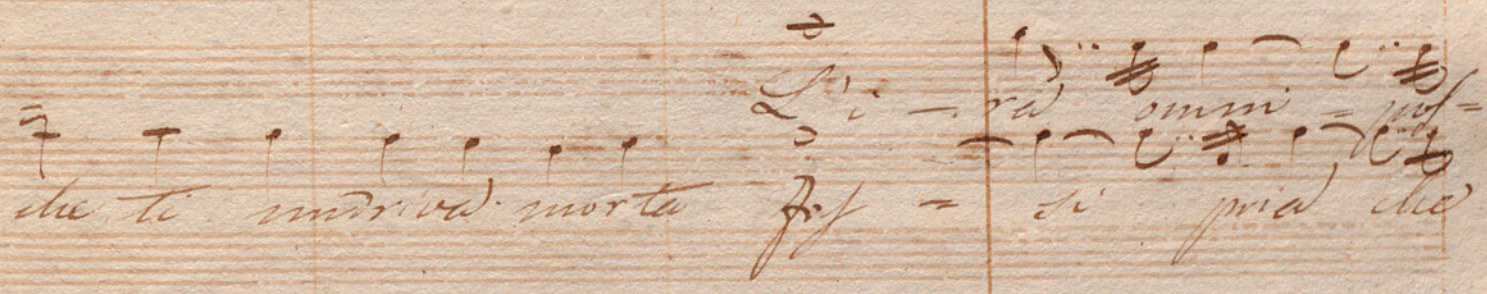 L'i - ra omni = pos=
che ti nudriva morta fos = si pria che